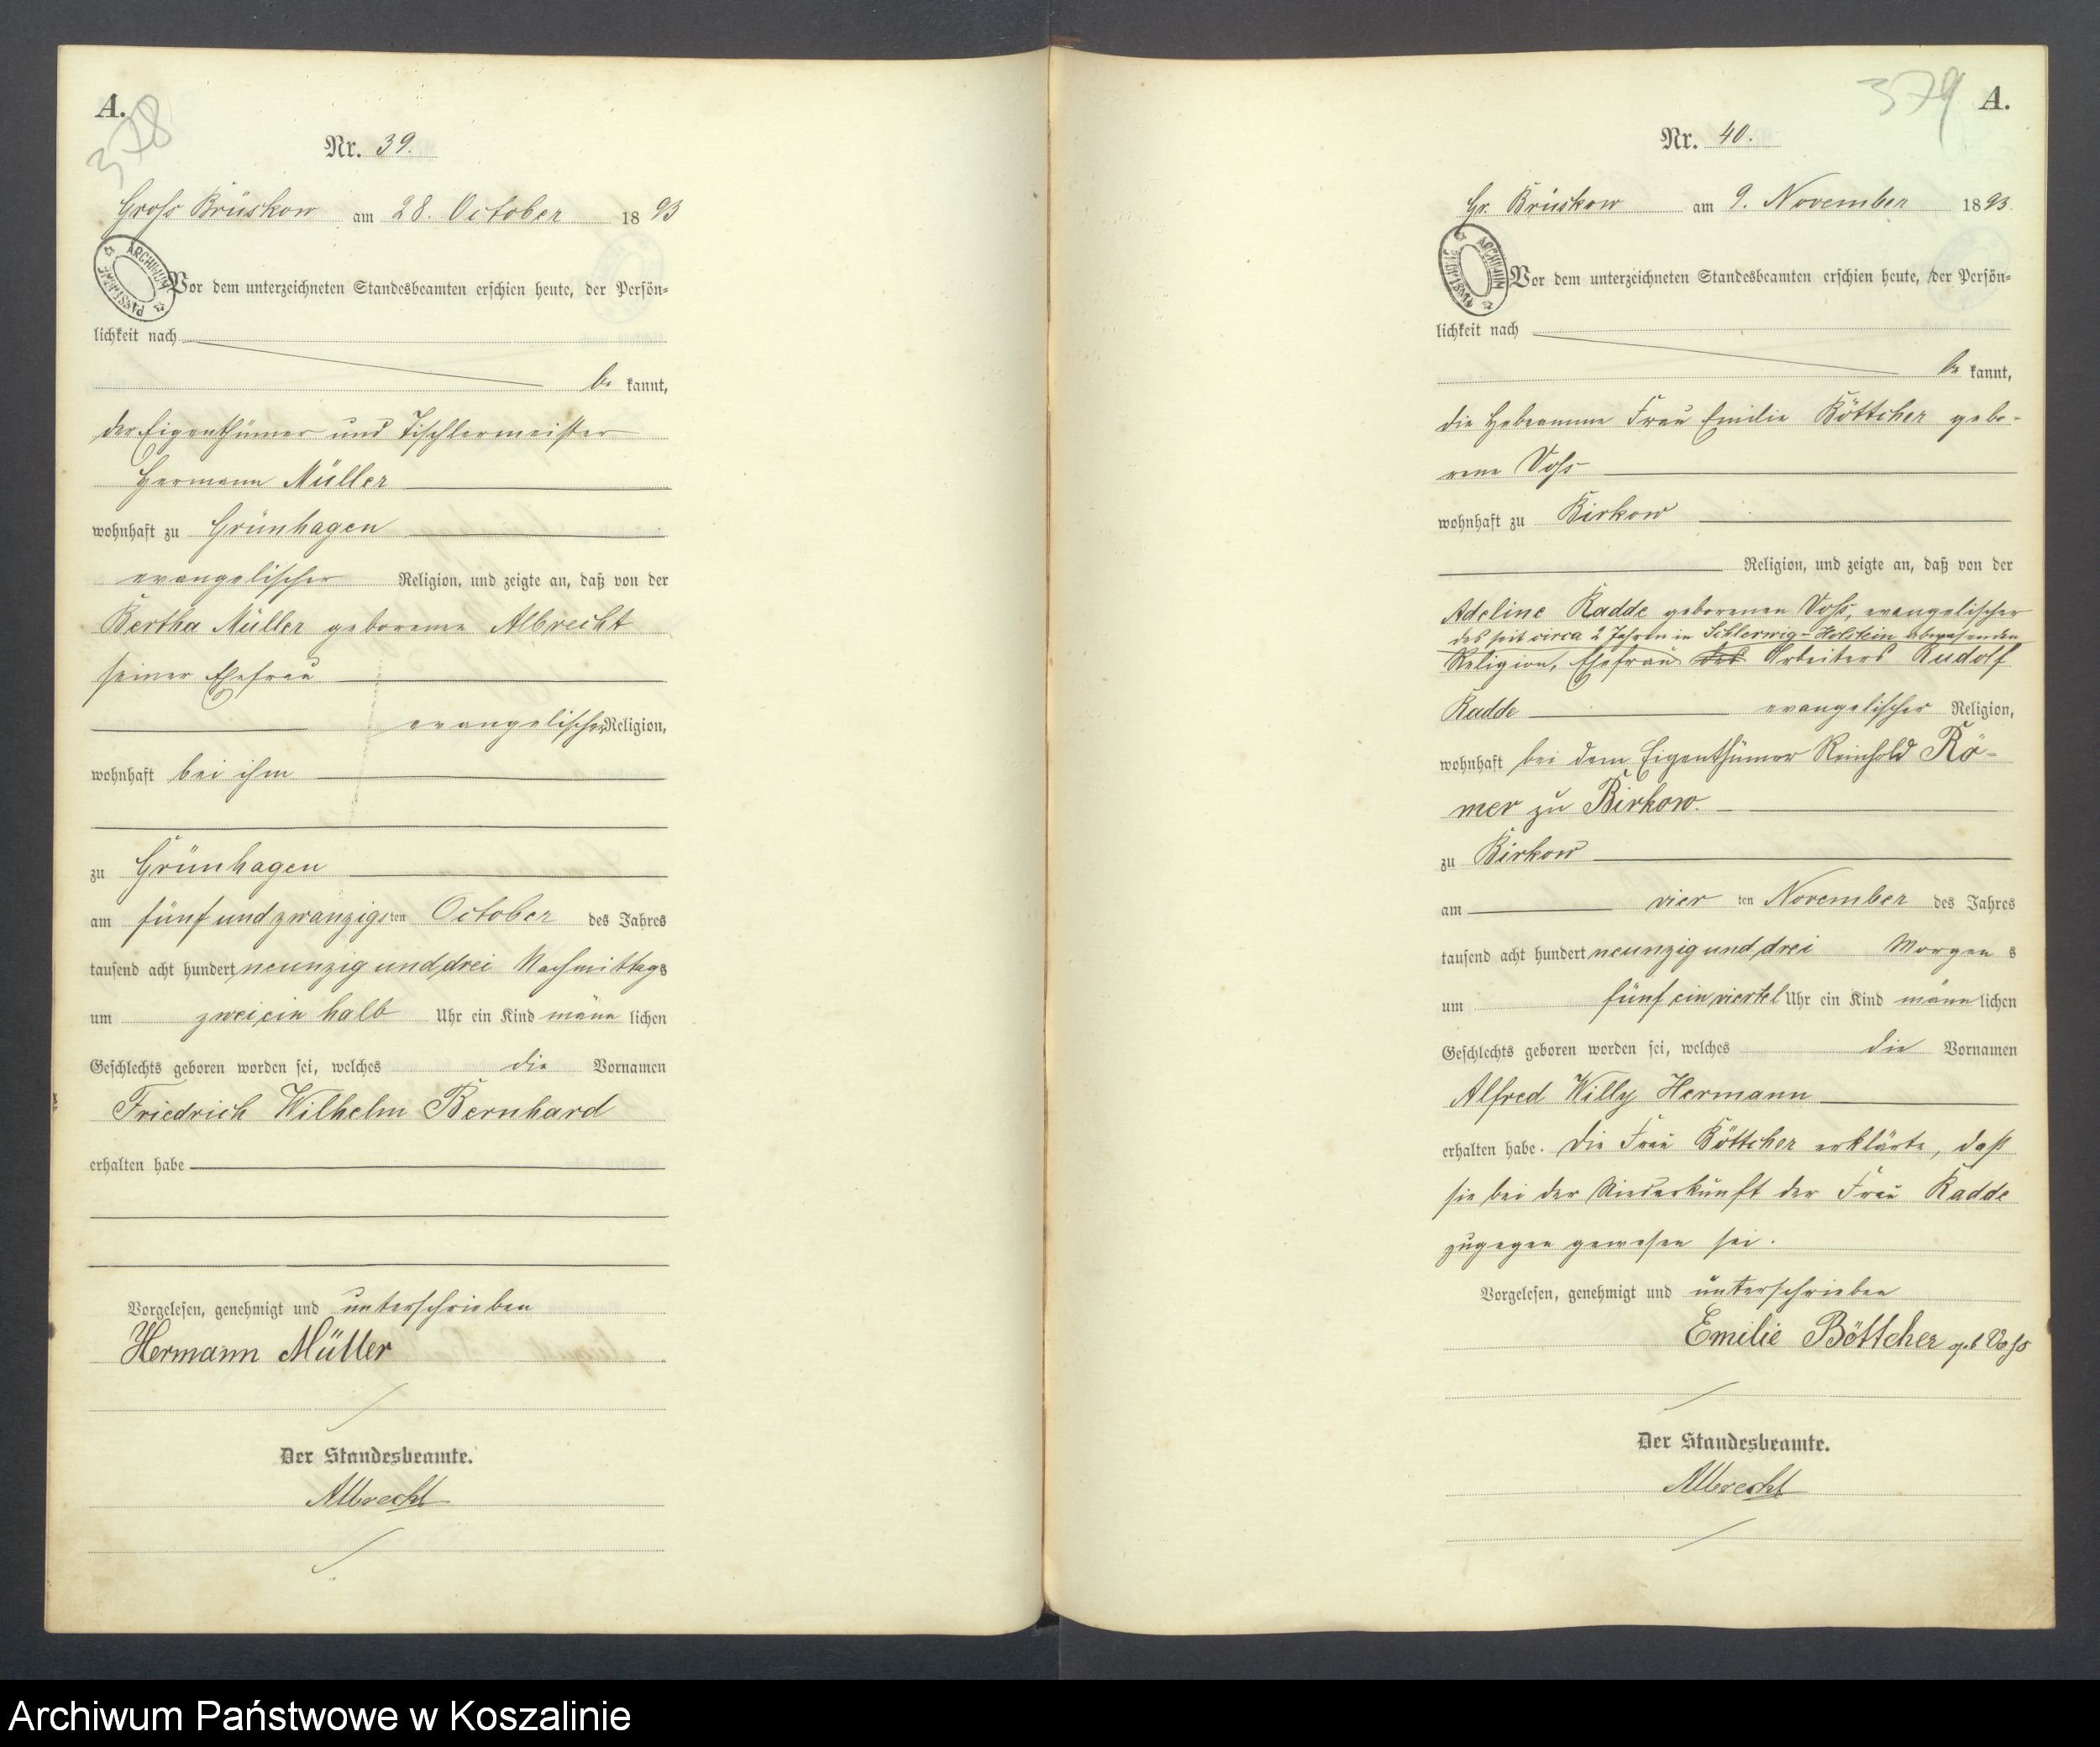 A.
378
Nr. 39.
Gross Brüskow am 28. October 1893
ARCHIWUM PAŃSTWOWE
Vor dem unterzeichneten Standesbeamten erschien heute, der Persön-
lichkeit nach
be kannt,
der Eigenthümer und Tischlermeister
Hermann Müller
wohnhaft zu Grünhagen
evangelischer Religion, und zeigte an, daß von der
Bertha Müller geborenen Albrecht
seiner Ehefrau
evangelischer Religion,
wohnhaft bei ihm
zu Grünhagen
am fünf und zwanzigsten October des Jahres
tausend acht hundert neunzig und drei Nachmittags
um zwei ein halb Uhr ein Kind männ lichen
Geschlechts geboren worden sei, welches die Vornamen
Friedrich Wilhelm Bernhard
erhalten habe
Vorgelesen, genehmigt und unterschrieben
Hermann Müller
Der Standesbeamte.
Albrecht
379
A.
Nr. 40.
Gr. Brüskow am 9. November 1893.
ARCHIWUM PAŃSTWOWE
Vor dem unterzeichneten Standesbeamten erschien heute, der Persön-
lichkeit nach
be kannt,
die Hebeamme Frau Emilie Böttcher gebo-
rene Voss
wohnhaft zu Birkow
Religion, und zeigte an, daß von der
Adeline Radde geborenen Voss, evangelischer
des seit circa 2 Jahren in Schleswig-Holstein abwesenden
Religion, Ehefrau des Arbeiters Rudolf
Radde evangelischer Religion,
wohnhaft bei dem Eigenthümer Reinhold Rö-
mer zu Birkow.
zu Birkow
am vier ten November des Jahres
tausend acht hundert neunzig und drei Morgen s
um fünf ein viertel Uhr ein Kind männ lichen
Geschlechts geboren worden sei, welches die Vornamen
Alfred Willy Hermann
erhalten habe. Die Frau Böttcher erklärte, daß
sie bei der Niederkunft der Frau Radde
zugegen gewesen sei.
Vorgelesen, genehmigt und unterschrieben
Emilie Böttcher geb Voss
Der Standesbeamte.
Albrecht
Archiwum Państwowe w Koszalinie